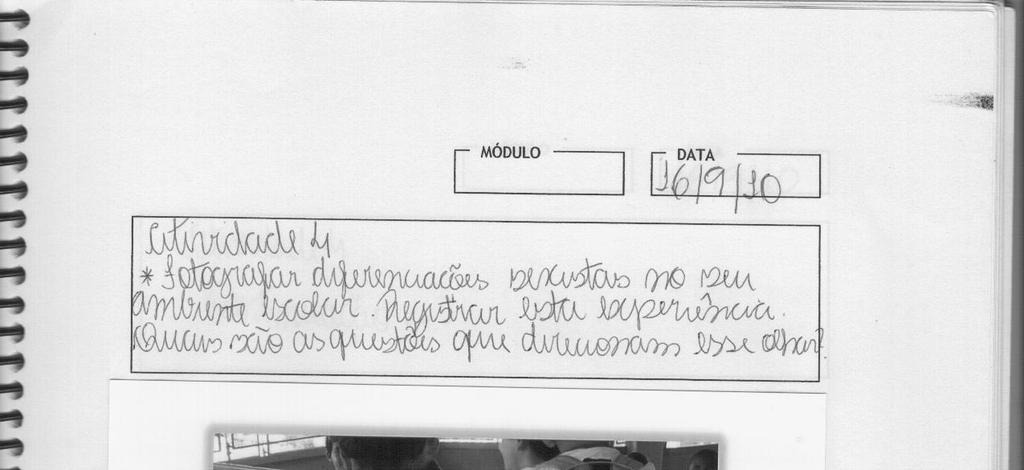 MÓDULO
DATA
16/9/10
Atividade 4
* Fotografar diferenciações sexistas no seu
ambiente escolar. Registrar esta experiência.
Quais são as questões que direcionam esse olhar?